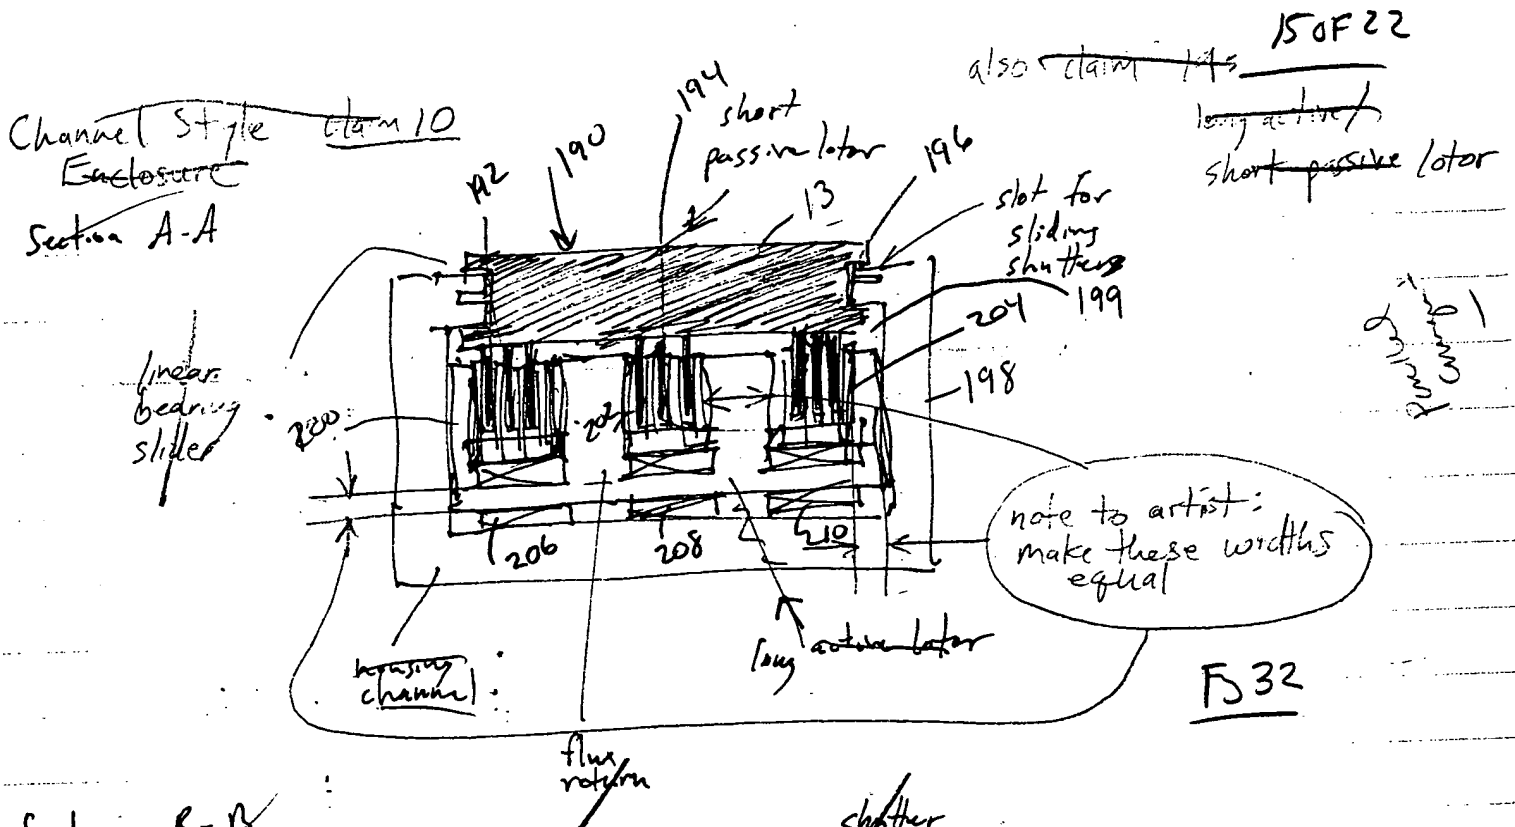 15 OF 22
also claim 19s
long active/
short passive lotor
Channel Style claim 10
Enclosure
Section A-A
192
190
194
short
passive lotor
13
196
slot for
sliding
shutters
199
204
198
linear
bearing
slider
200
202
206
208
210
note to artist:
make these widths
equal
housing
channel
long active lotor
flux
return
Fg 32
B-B
shutter